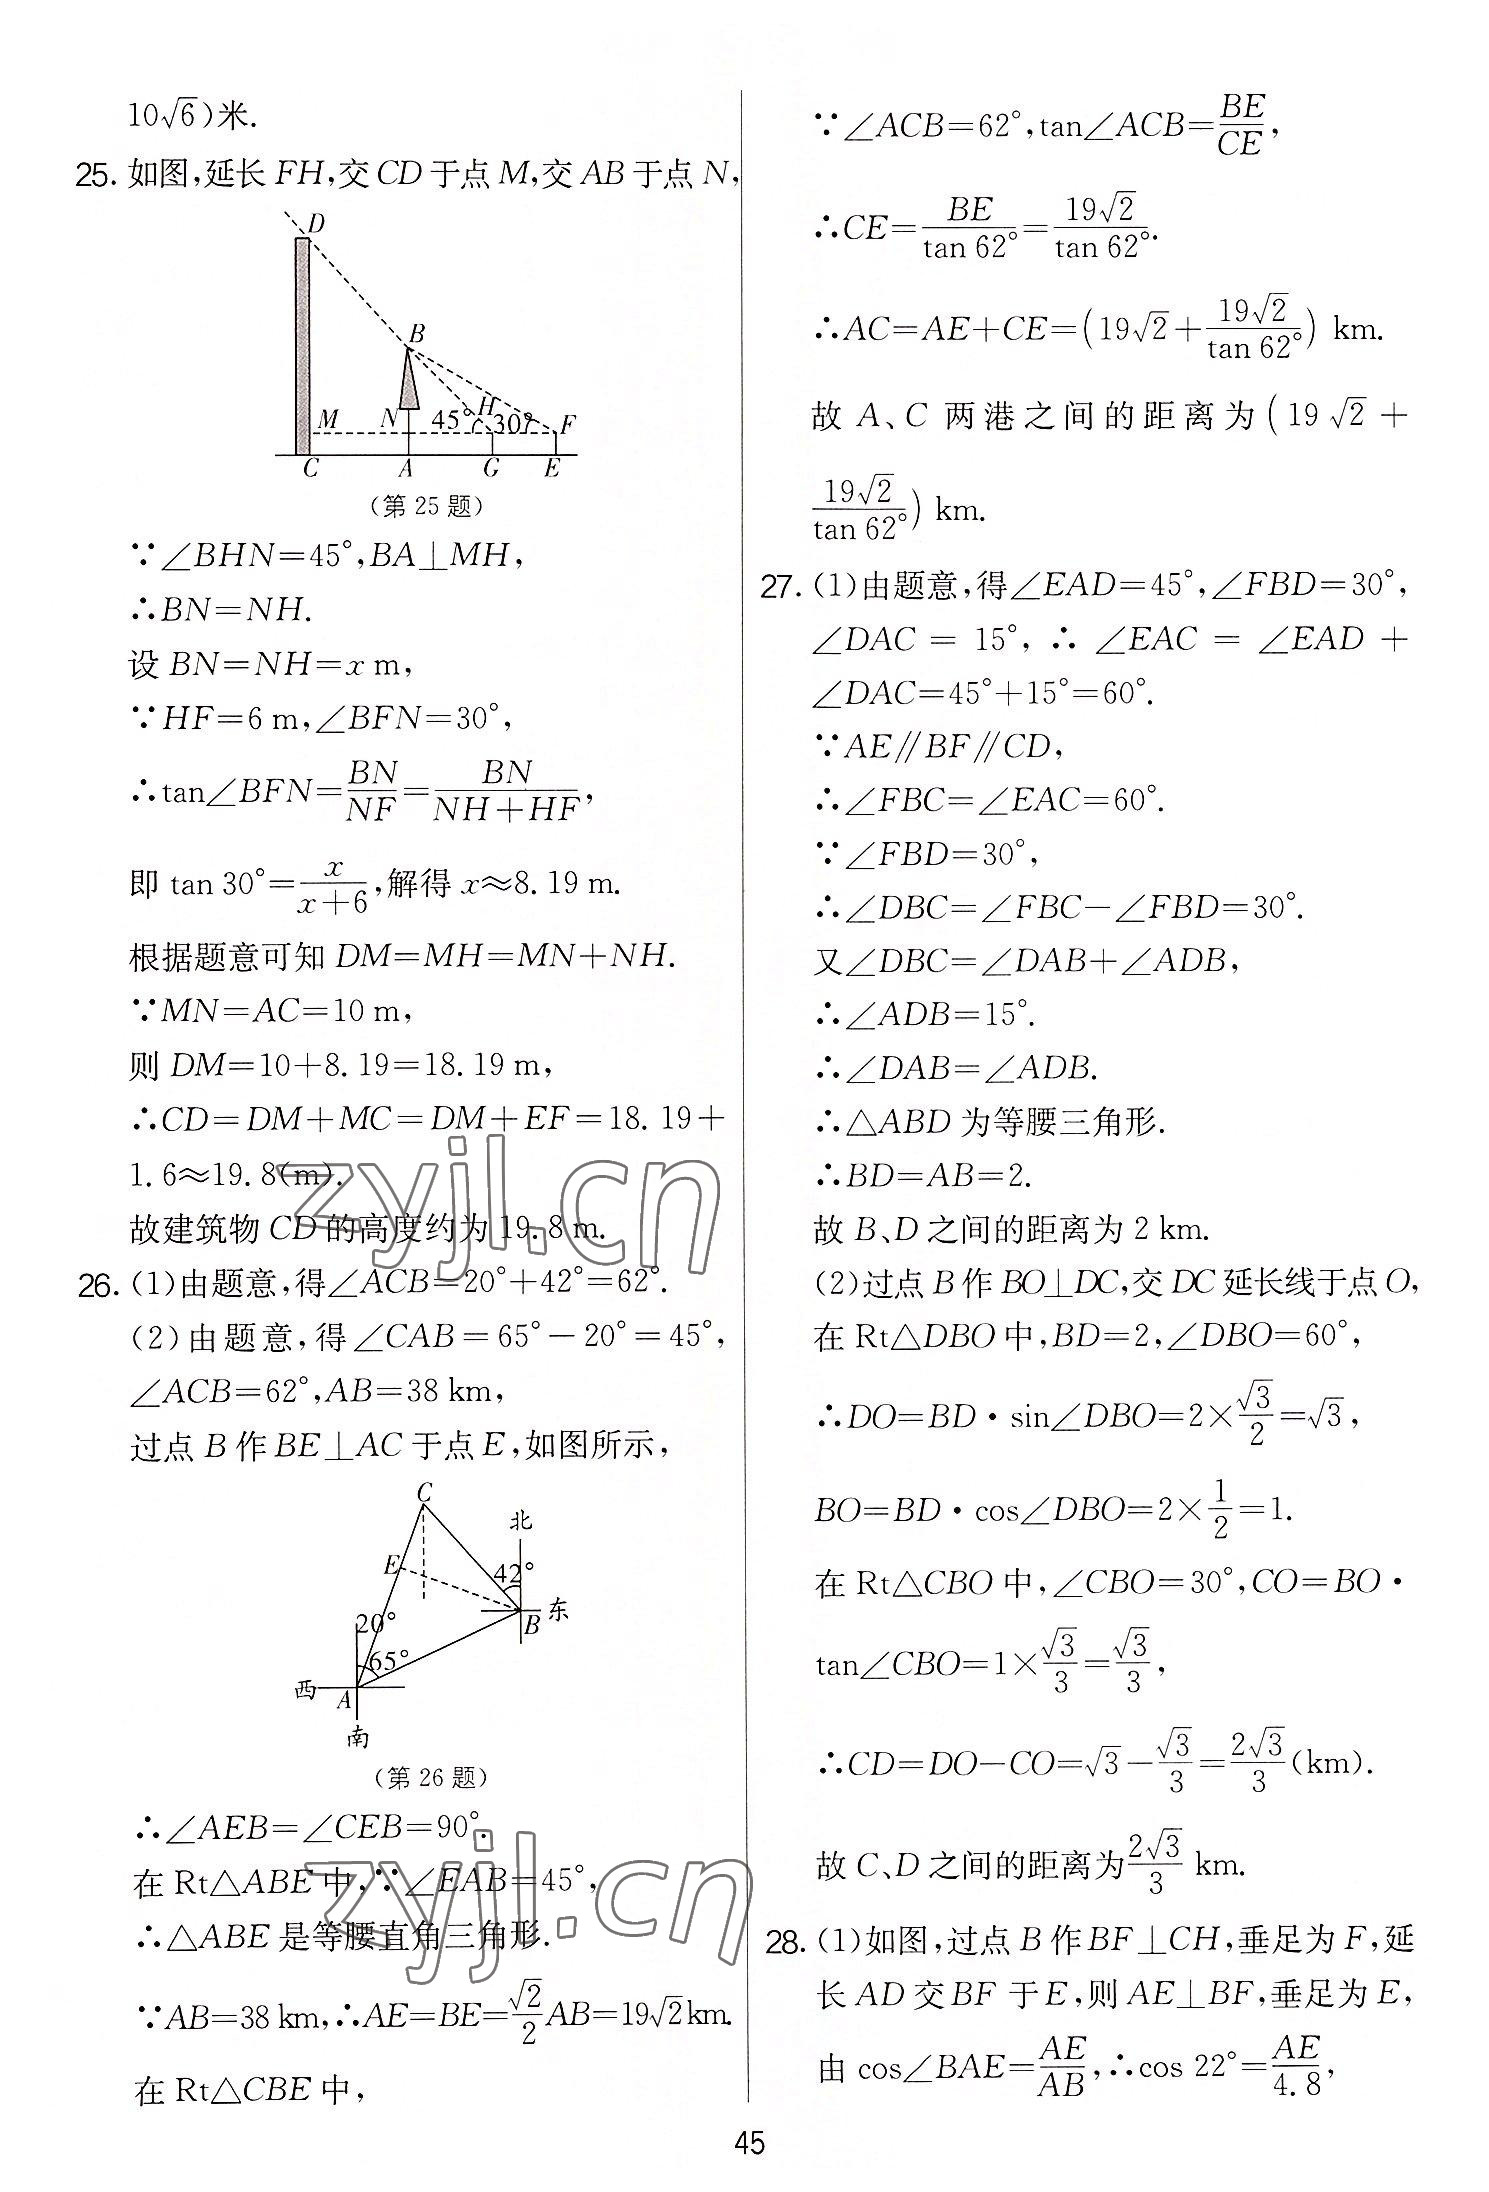 10√6)米.
25. 如图,延长 FH,交 CD 于点 M,交 AB 于点 N,
D
B
M N 45° H 30° F
C A G E
(第 25 题)
∵∠BHN=45°,BA⊥MH,
∴BN=NH.
设 BN=NH=x m,
∵HF=6 m,∠BFN=30°,
∴tan∠BFN=BN/NF=BN/(NH+HF),
即 tan 30°=x/(x+6),解得 x≈8.19 m.
根据题意可知 DM=MH=MN+NH.
∵MN=AC=10 m,
则 DM=10+8.19=18.19 m,
∴CD=DM+MC=DM+EF=18.19+
1.6≈19.8(m).
故建筑物 CD 的高度约为 19.8 m.
26. (1)由题意,得∠ACB=20°+42°=62°.
(2)由题意,得∠CAB=65°-20°=45°,
∠ACB=62°,AB=38 km,
过点 B 作 BE⊥AC 于点 E,如图所示,
C
北
E 42°
B 东
20°
65°
西 A
南
(第 26 题)
∴∠AEB=∠CEB=90°.
在 Rt△ABE 中,∵∠EAB=45°,
∴△ABE 是等腰直角三角形.
∵AB=38 km,∴AE=BE=√2/2 AB=19√2 km.
在 Rt△CBE 中,
∵∠ACB=62°,tan∠ACB=BE/CE,
∴CE=BE/tan 62°=19√2/tan 62°.
∴AC=AE+CE=(19√2+19√2/tan 62°) km.
故 A、C 两港之间的距离为(19√2+
19√2/tan 62°) km.
27. (1)由题意,得∠EAD=45°,∠FBD=30°,
∠DAC=15°,∴∠EAC=∠EAD+
∠DAC=45°+15°=60°.
∵AE∥BF∥CD,
∴∠FBC=∠EAC=60°.
∵∠FBD=30°,
∴∠DBC=∠FBC-∠FBD=30°.
又∠DBC=∠DAB+∠ADB,
∴∠ADB=15°.
∴∠DAB=∠ADB.
∴△ABD 为等腰三角形.
∴BD=AB=2.
故 B、D 之间的距离为 2 km.
(2)过点 B 作 BO⊥DC,交 DC 延长线于点 O,
在 Rt△DBO 中,BD=2,∠DBO=60°,
∴DO=BD·sin∠DBO=2×√3/2=√3,
BO=BD·cos∠DBO=2×1/2=1.
在 Rt△CBO 中,∠CBO=30°,CO=BO·
tan∠CBO=1×√3/3=√3/3,
∴CD=DO-CO=√3-√3/3=2√3/3(km).
故 C、D 之间的距离为2√3/3 km.
28. (1)如图,过点 B 作 BF⊥CH,垂足为 F,延
长 AD 交 BF 于 E,则 AE⊥BF,垂足为 E,
由 cos∠BAE=AE/AB,∴cos 22°=AE/4.8,
45
zyjl.cn
zyjl.cn